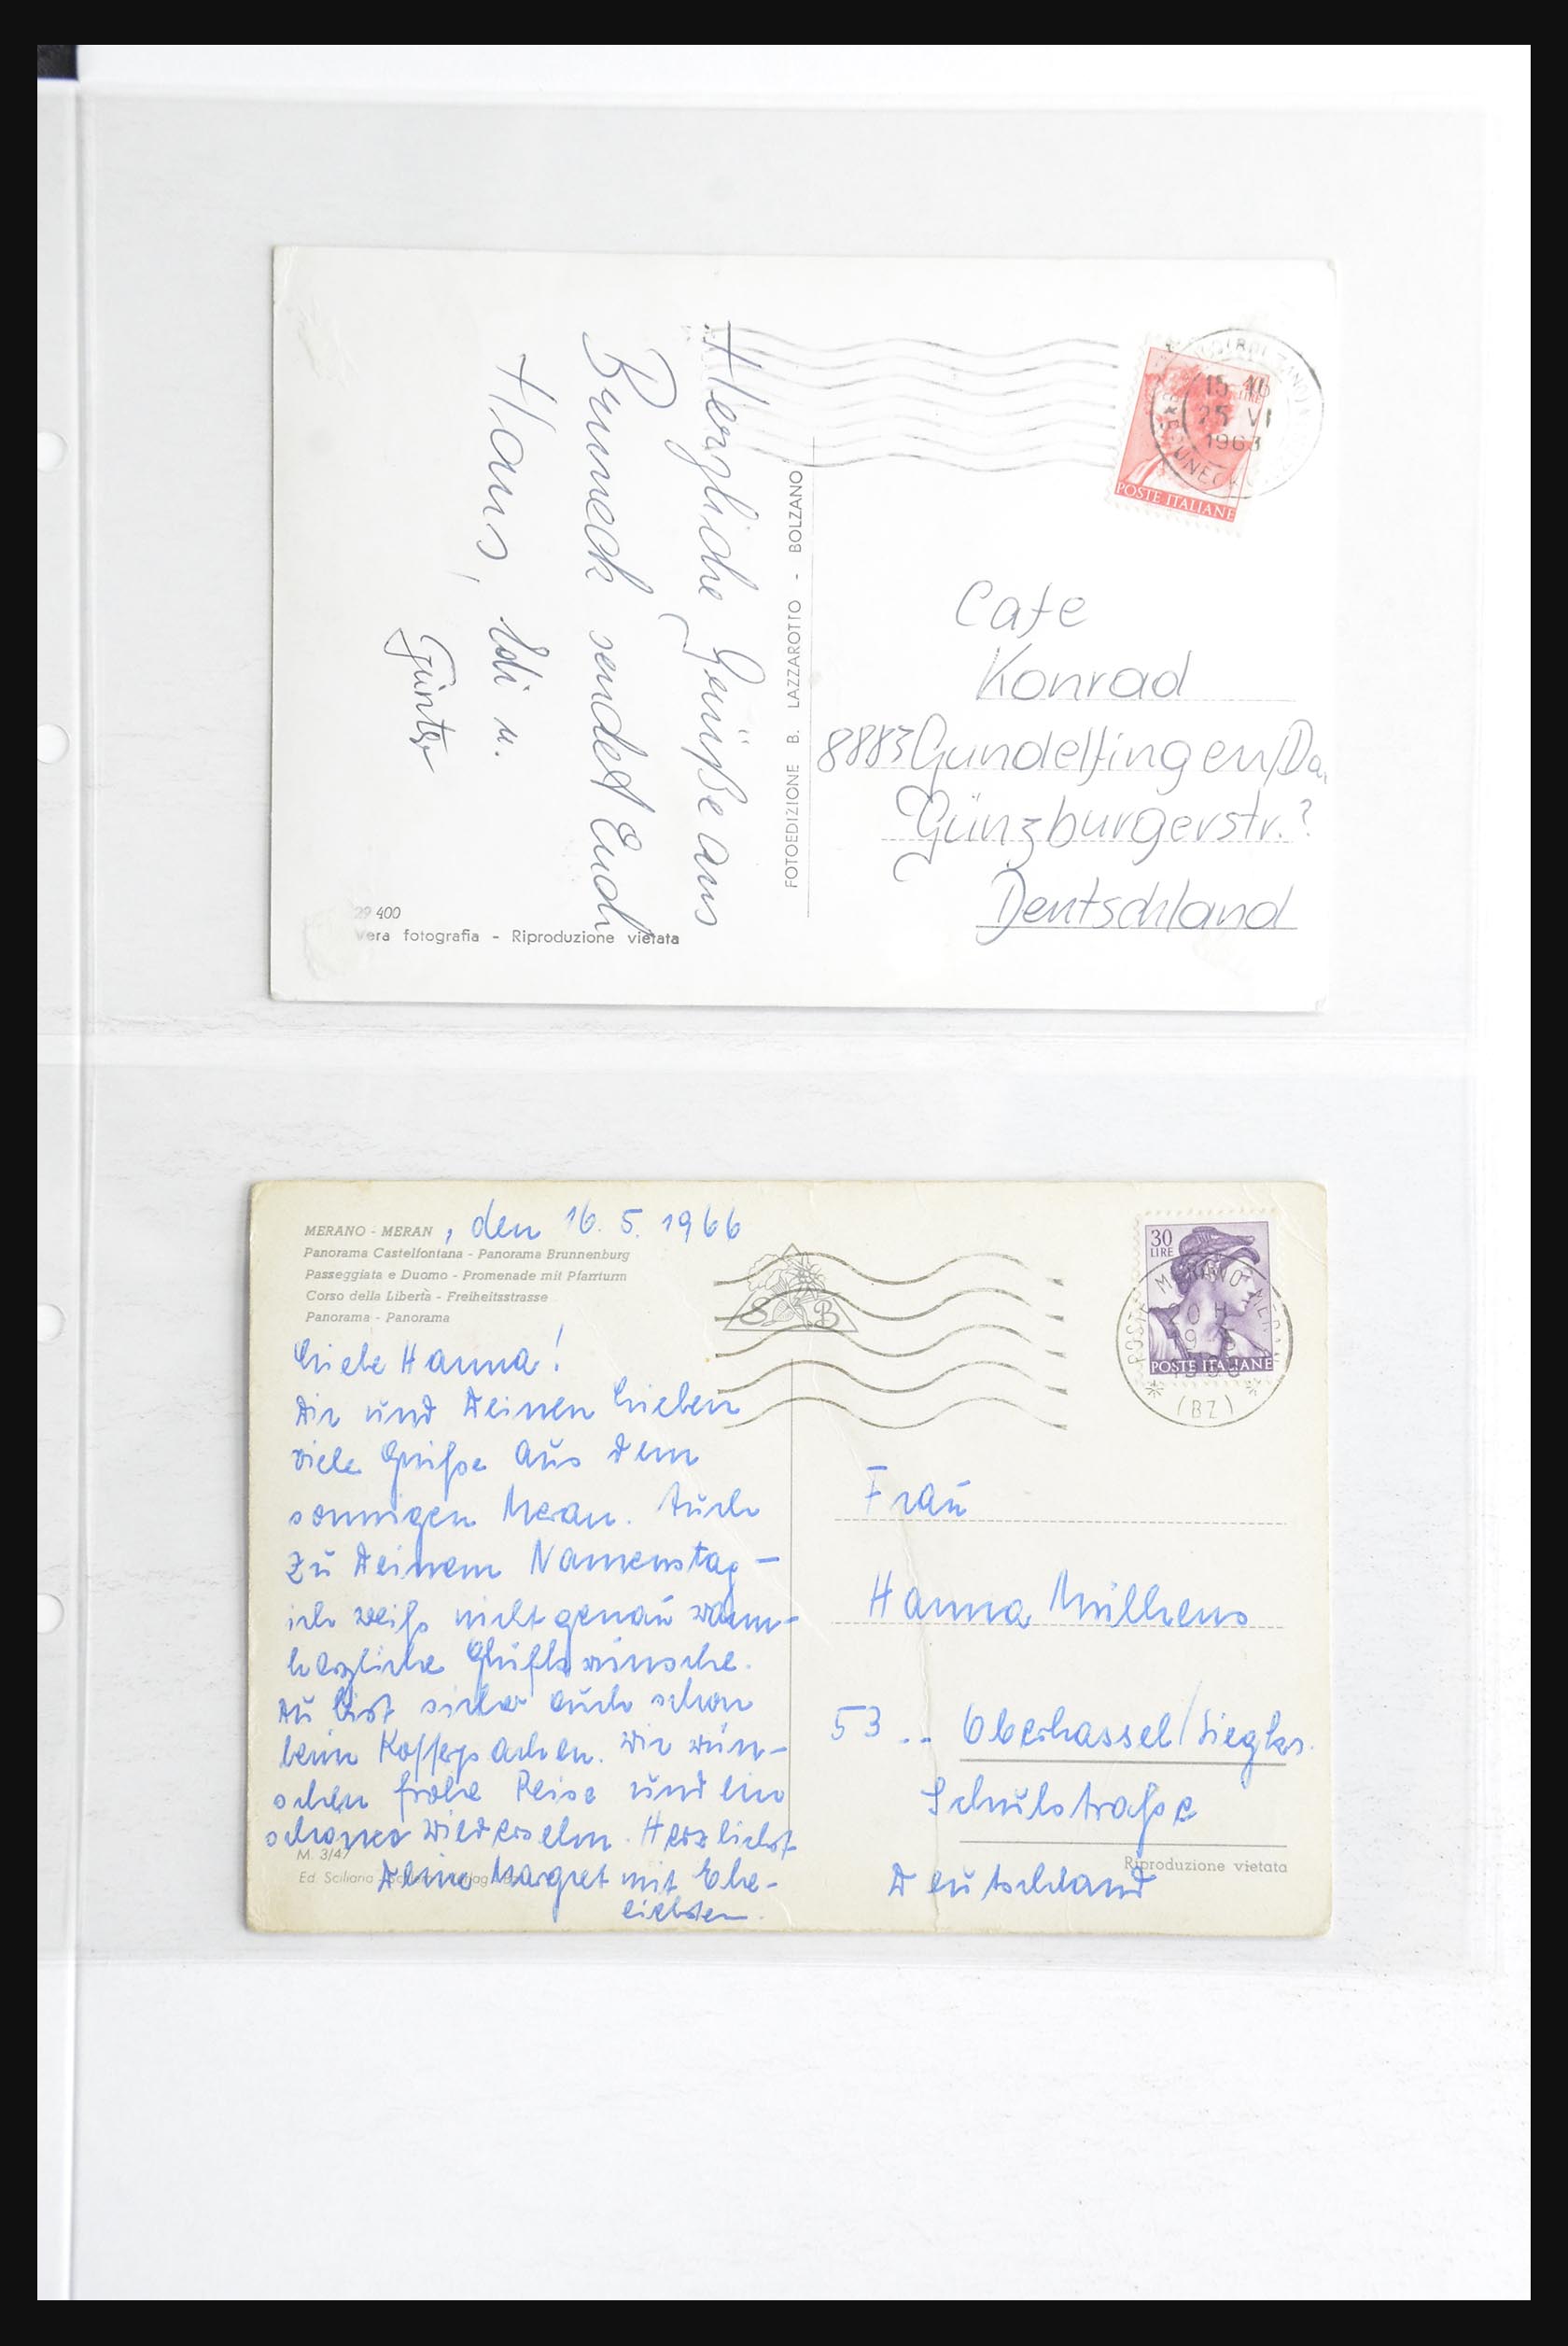 Herzliche Grüße aus
Bruneck sendet Euch
Hans, Edi u.
Günter
29 400
Vera fotografia - Riproduzione vietata
FOTOEDIZIONE B. LAZZAROTTO - BOLZANO
15
25 VI
1963
POSTE ITALIANE
Cafe
Konrad
8883 Gundelfingen/Do.
Günzburgerstr. ?
Deutschland
MERANO - MERAN, den 16. 5. 1966
Panorama Castelfontana - Panorama Brunnenburg
Passeggiata e Duomo - Promenade mit Pfarrturm
Corso della Libertà - Freiheitsstrasse
Panorama - Panorama
Liebe Hanna!
Dir und Deinen Lieben
viele Grüße aus dem
sonnigen Meran. Auch
zu Deinem Namenstag -
ich weiß nicht genau wann -
herzliche Glückwünsche.
Du bist sicher auch schon
beim Kofferpacken. Wir wün-
schen frohe Reise und ein
schönes Wiedersehn. Herzlichst
Deine Margret mit Ehe-
liebsten.
M. 3/47
Ed. Sciliaria
S B
30
LIRE
POSTE ITALIANE
POSTE MERANO MERAN
20 H
(BZ)
Frau
Hanna Mülhens
53 .. Oberkassel/Siegkr.
Schulstraße
Riproduzione vietata
Deutschland